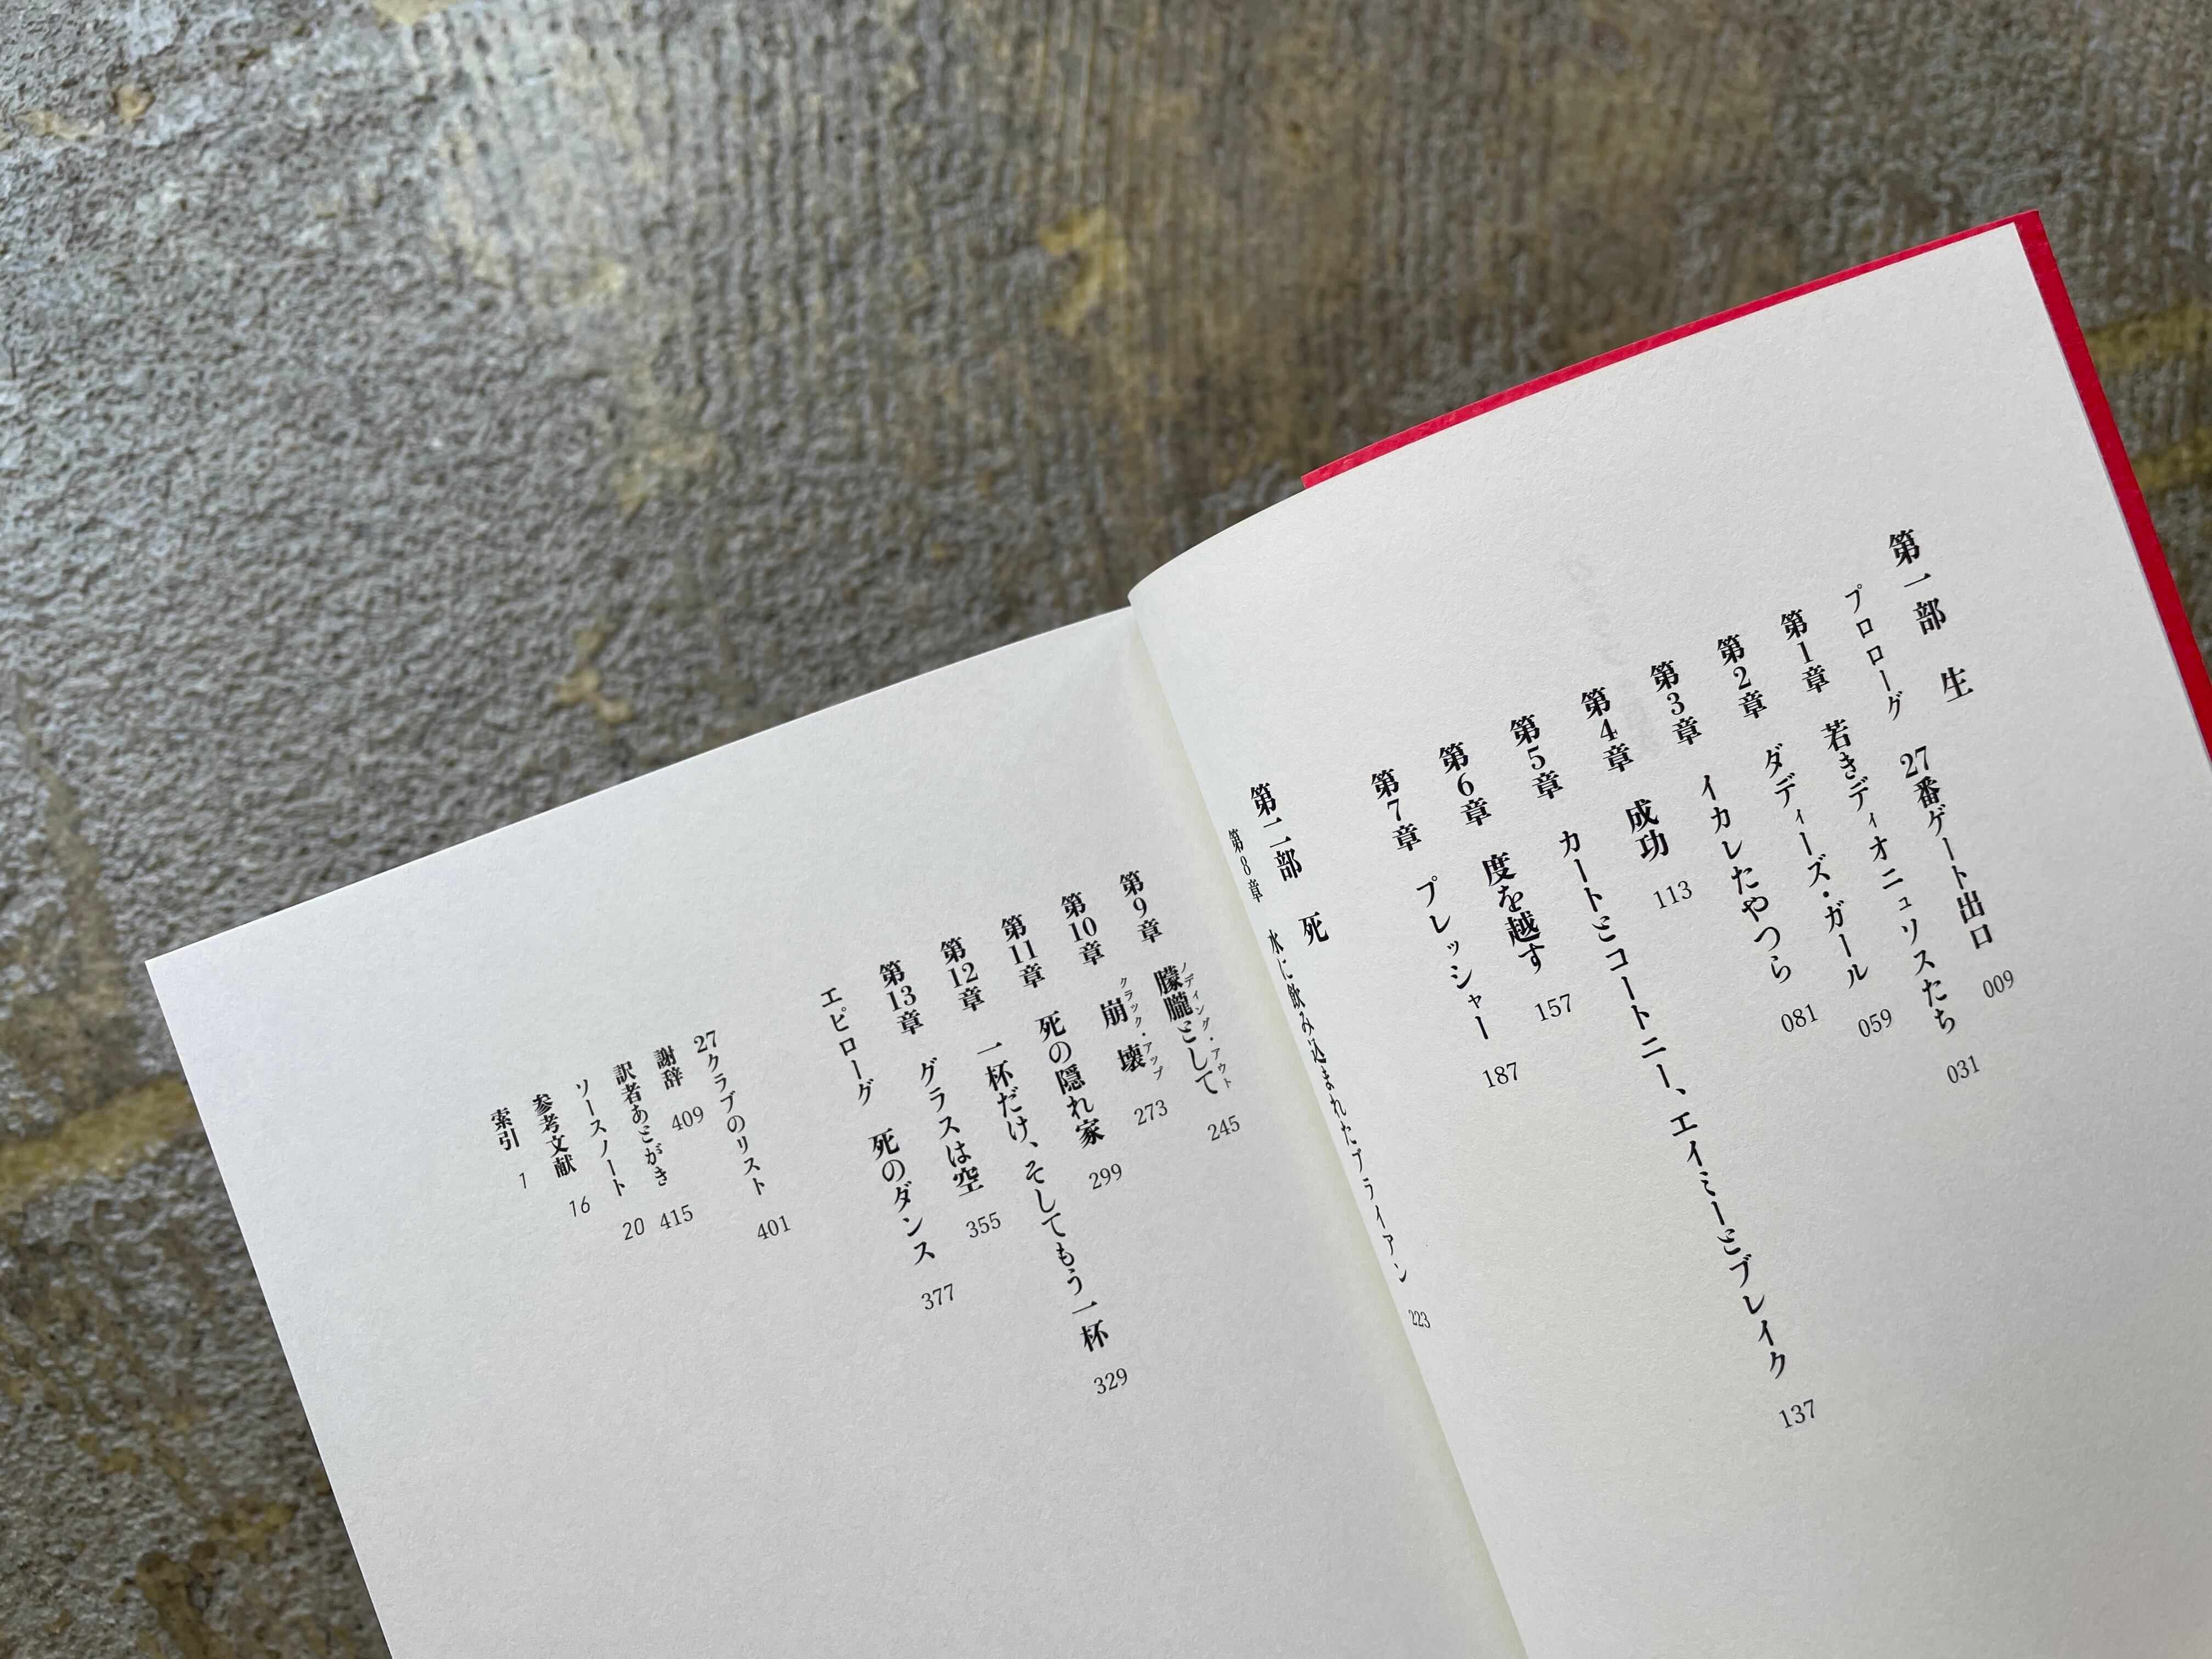 第一部　生
プロローグ　27番ゲート出口　009
第1章　若きディオニュソスたち　031
第2章　ダディーズ・ガール　059
第3章　イカレたやつら　081
第4章　成功　113
第5章　カートとコートニー、エイミーとブレイク　137
第6章　度を越す　157
第7章　プレッシャー　187
第二部　死
第8章　水に飲み込まれたブライアン　223
第9章　朦朧として　245
ノディング・アウト
第10章　崩壊　273
クラック・アップ
第11章　死の隠れ家　299
第12章　一杯だけ、そしてもう一杯　329
第13章　グラスは空　355
エピローグ　死のダンス　377
27クラブのリスト　401
謝辞　409
訳者あとがき　415
ソースノート　20
参考文献　16
索引　1